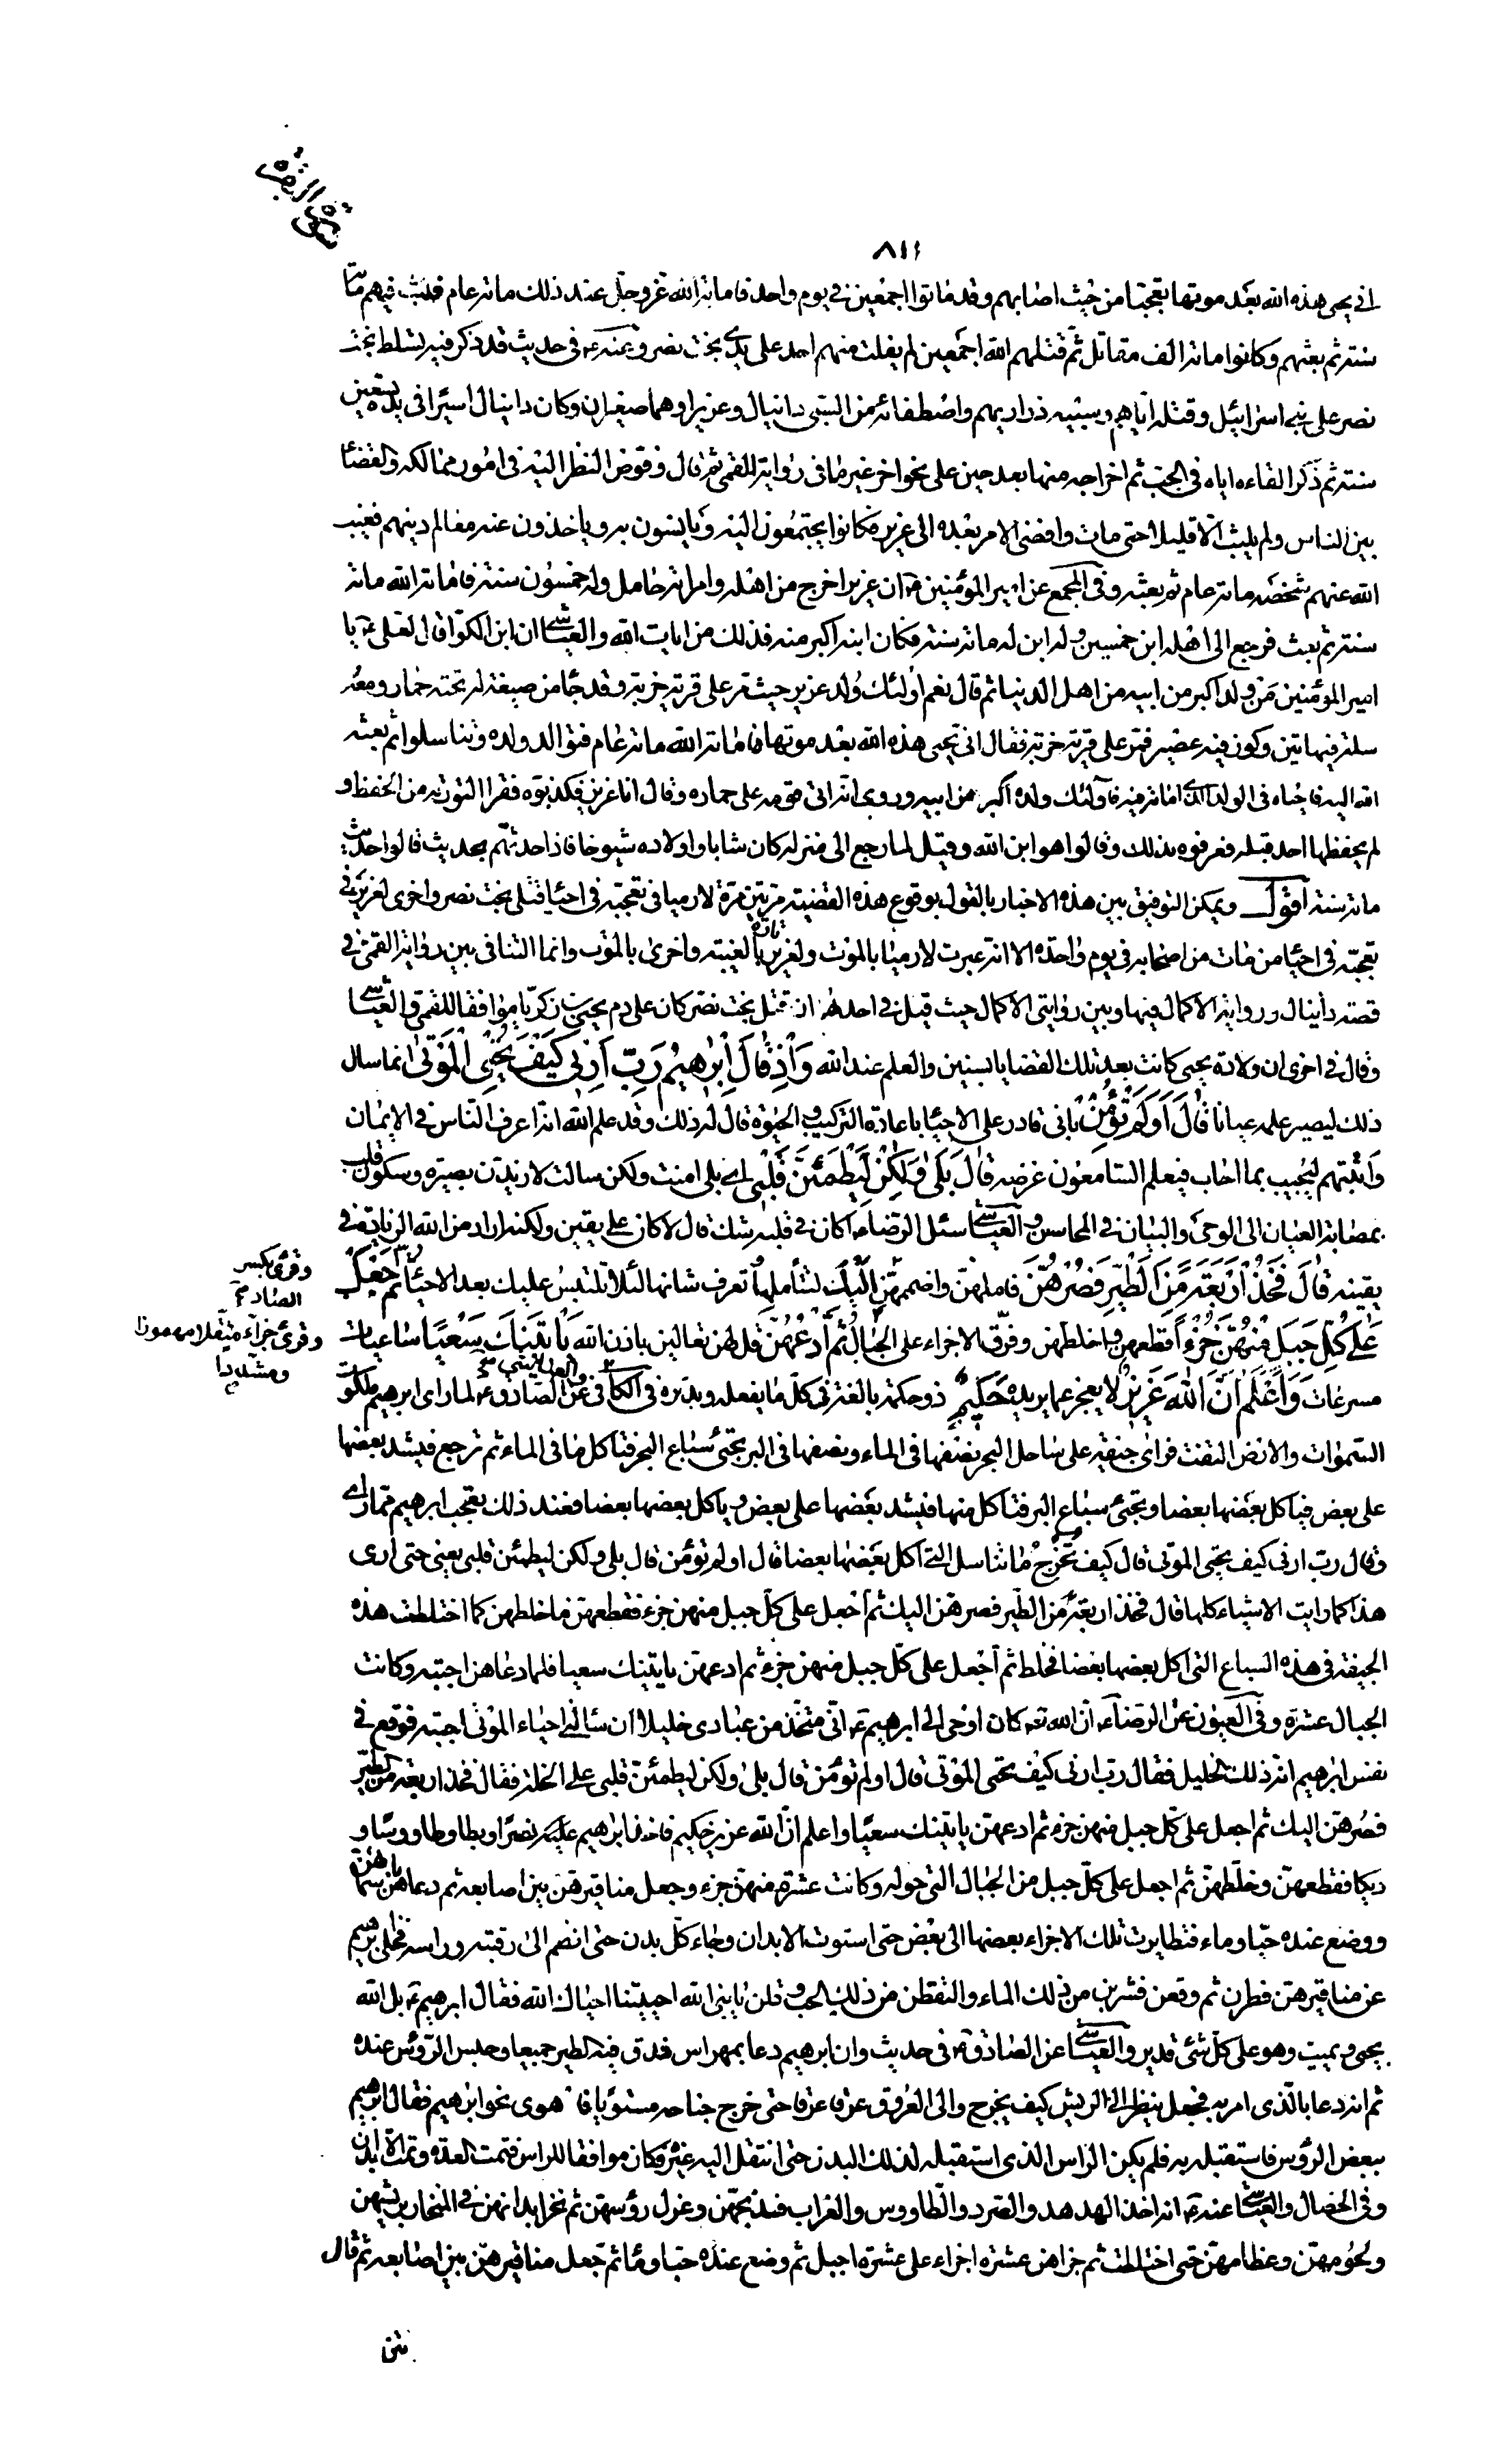 سورة البقرة
٨١١
انى يحيى هذه الله بعد موتها تعجبا من حيث اصابهم وقد ماتوا اجمعين فى يوم واحد فاماته الله عز وجل عند ذلك مائة عام فلبث فيهم مائة
سنة ثم بعثهم وكانوا مائة الف مقاتل ثم قتلهم الله اجمعين لم يفلت منهم احد على يدى بخت نصر وعنه ع فى حديث قد ذكر فيه تسلط بخت
نصر على بنى اسرائيل وقتله اياهم وسبيه ذراريهم واصطفائه من السبى دانيال وعزيرا وهما صغيران وكان دانيال اسيرا فى يده تسعين
سنة ثم ذكر القاءه اياه فى الجب ثم اخراجه منها بعد حين على نحو اخر غير ما فى رواية القمى ثم قال وفوض النظر اليه فى امور ممالكه والقضاء
بين الناس ولم يلبث الا قليلا حتى مات وافضى الامر بعده الى عزير فكانوا يجتمعون اليه ويأنسون به ويأخذون عنه معالم دينهم فغيب
الله عنهم شخصه مائة عام ثم بعثه وفى المجمع عن امير المؤمنين ع ان عزيرا خرج من اهله وامراته حامل وله خمسون سنة فاماته الله مائة
سنة ثم بعث فرجع الى اهله ابن خمسين وله ابن له مائة سنة فكان ابنه اكبر منه فذلك من ايات الله والعياشى ان ابن الكوا قال لعلى ع يا
امير المؤمنين من ولد اكبر من ابيه من اهل الدنيا ثم قال نعم اولئك ولد عزير حيث مر على قرية خربة وقد جاء من ضيعة له تحته حمار ومعه
سلة فيها تين وكوز فيه عصير فمر على قرية خربة فقال انى يحيى هذه الله بعد موتها فاماته الله مائة عام فتوالد ولده وتناسلوا ثم بعثه
الله اليه فاحياه فى المولد الذى اماته فيه فاولئك ولده اكبر من ابيهم وروى انه اتى قومه على حماره وقال انا عزير فكذبوه فقرا التورية من الحفظ و
لم يحفظها احد قبله فعرفوه بذلك وقالوا هو ابن الله وقيل لما رجع الى منزله كان شابا واولاده شيوخا فاذا حدثهم بحديث قالوا حديث
مائة سنة اقول ويمكن التوفيق بين هذه الاخبار بالقول بوقوع هذه القضية مرتين مرة لارميا فى تعجبه فى احياء قتلى بخت نصر واخرى لعزير فى
تعجبه فى احياء من مات من اصحابه فى يوم واحد الا انه عبرت لارميا بالموت ولعزير تارة بالغيبة واخرى بالموت وانما التنافى بين رواية القمى فى
قصة دانيال ورواية الاكمال فيها وبين روايتى الاكمال حيث قيل فى احدهما ان قتل بخت نصر كان على دم يحيى بن زكريا موافقا للقمى والعياشى
وقال فى اخرى ان ولادة يحيى كانت بعد تلك القضايا بسنين والعلم عند الله وَاِذْ قَالَ اِبْرٰهيمُ رَبِّ اَرِنى كَيْفَ تُحْيِى الْمَوْتٰى انما سال
ذلك ليصير علمه عيانا قَالَ اَوَلَمْ تُؤْمِنْ بانى قادر على الاحياء باعادة التركيب والحيوة قال له ذلك وقد علم الله انه اعرف الناس فى الايمان
واثبتهم ليجيب بما اجاب فيعلم السامعون غرضه قَالَ بَلٰى وَلٰكِنْ لِيَطْمَئِنَّ قَلْبى اى بلى امنت ولكن سالت لازيد بصيرة وسكون قلب
بمضامة العيان الى الوحى والبيان فى المحاسن والعياشى سئل الرضا ع اكان فى قلبه شك قال لا كان على يقين ولكنه اراد من الله الزيادة فى
يقينه قَالَ فَخُذْ اَرْبَعَةً مِنَ الطَّيْرِ فَصُرْهُنَّ فاملهن واضممهن اِلَيْكَ لتتاملها وتعرف شانها لئلا تلتبس عليك بعد الاحياء ثُمَّ اجْعَلْ
وقرئ بكسر
الصاد
عَلٰى كُلِّ جَبَلٍ مِنْهُنَّ جُزْءاً فقطعهن واخلطهن وفرق الاجزاء على الجبال ثُمَّ ادْعُهُنَّ قل لهن تعالين باذن الله يَأْتينَكَ سَعْياً ساعيات
وقرئ جزاء مثقلا مهموزا
ومشددا
مسرعات وَاعْلَمْ اَنَّ اللهَ عَزيزٌ لا يعجز عما يريده حَكيمٌ ذو حكمة بالغة فى كل ما يفعله ويذره فى الكافى والعياشى عن الصادق ع لما راى ابرهيم ملكوت
السموات والارض التفت فراى جيفة على ساحل البحر نصفها فى الماء ونصفها فى البر تجئ سباع البحر فتاكل ما فى الماء ثم ترجع فيشد بعضها
على بعض فياكل بعضها بعضا وتجئ سباع البر فتاكل منها فيشد بعضها على بعض وياكل بعضها بعضا فعند ذلك تعجب ابرهيم مما راى
وقال رب ارنى كيف تحيى الموتى قال كيف تخرج ما تناسل التى اكل بعضها بعضا قال اولم تؤمن قال بلى ولكن ليطمئن قلبى يعنى حتى ارى
هذا كما رايت الاشياء كلها قال فخذ اربعة من الطير فصرهن اليك ثم اجعل على كل جبل منهن جزء فقطعهن فاخلطهن كما اختلطت هذه
الجيفة فى هذه السباع التى اكل بعضها بعضا فخلط ثم اجعل على كل جبل منهن جزء ثم ادعهن ياتينك سعيا فلما دعاهن اجبنه وكانت
الجبال عشرة وفى العيون عن الرضا ع ان الله تعه كان اوحى الى ابرهيم ع انى متخذ من عبادى خليلا ان سالنى احياء الموتى اجبته فوقع فى
نفس ابرهيم انه ذلك الخليل فقال رب ارنى كيف تحيى الموتى قال اولم تؤمن قال بلى ولكن ليطمئن قلبى على الخلة فقال فخذ اربعة من الطير
فصرهن اليك ثم اجعل على كل جبل منهن جزء ثم ادعهن ياتينك سعيا واعلم ان الله عزيز حكيم فاخذ ابرهيم عليه نسرا وبطا وطاووسا و
ديكا فقطعهن وخلطهن ثم اجعل على كل جبل من الجبال التى حوله وكانت عشرة منهن جزء وجعل مناقيرهن بين اصابعه ثم دعاهن باسمائهن
ووضع عنده حبا وماء فتطايرت تلك الاجزاء بعضها الى بعض حتى استوت الابدان وجاء كل بدن حتى انضم الى رقبته وراسه فخلى ابرهيم
عن مناقيرهن فطرن ثم وقعن فشربن من ذلك الماء والتقطن من ذلك الحب وقلن يا نبى الله احييتنا احياك الله فقال ابرهيم ع بل الله
يحيى ويميت وهو على كل شئ قدير والعياشى عن الصادق ع فى حديث وان ابرهيم دعا بمهراس فدق فيه الطير جميعا وحبس الرؤس عنده
ثم انه دعا بالذى امر به فجعل ينظر الى الريش كيف يخرج والى العروق عرقا عرقا حتى خرج جناحه مستويا فاهوى نحو ابرهيم فقال ابرهيم
ببعض الرؤس فاستقبله به فلم يكن الراس الذى استقبله لذلك البدن حتى انتقل اليه غيره فكان موافقا للراس فتمت العدة وتمت الابدان
وفى الخصال والعياشى عنه ع انه اخذ الهدهد والصرد والطاووس والغراب فذبحهن وعزل رؤسهن ثم نحر ابدانهن فى المنحاز بريشهن
ولحومهن وعظامهن حتى اختلطت ثم جزاهن عشرة اجزاء على عشرة اجبل ثم وضع عنده حبا وماء ثم جعل مناقيرهن بين اصابعه ثم قال